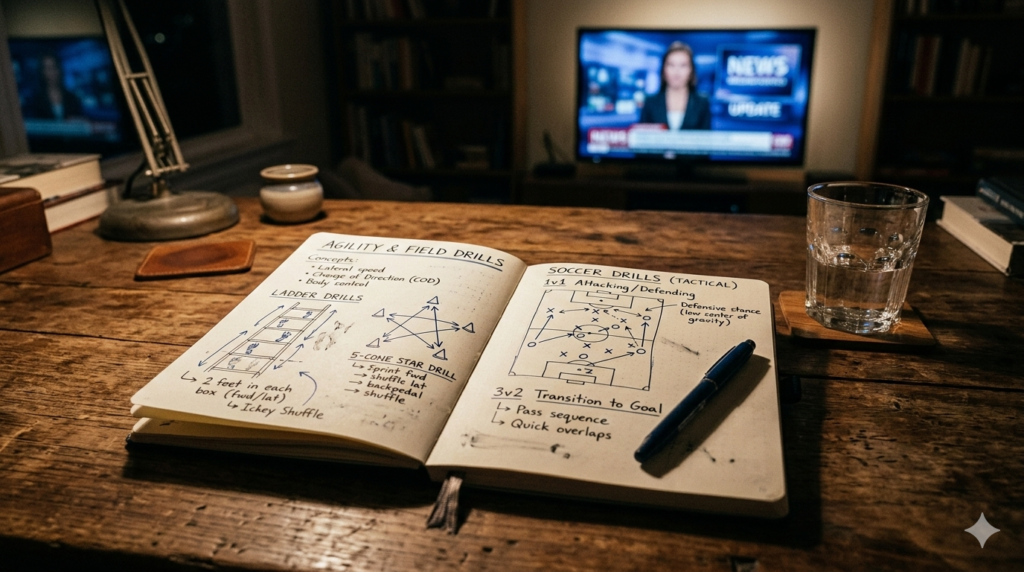 AGILITY & FIELD DRILLS
Concepts:
• Lateral speed
• Change of Direction (COD)
• Body control
LADDER DRILLS
2 feet in each
box (fwd/lat)
Ickey Shuffle
5-CONE STAR DRILL
Sprint fwd
shuffle lat
backpedal
shuffle
SOCCER DRILLS (TACTICAL)
1v1 Attacking/Defending
Defensive chance
(low center of
gravity)
3v2 Transition to Goal
Pass sequence
Quick overlaps
NEWS
UPDATE
NEWS